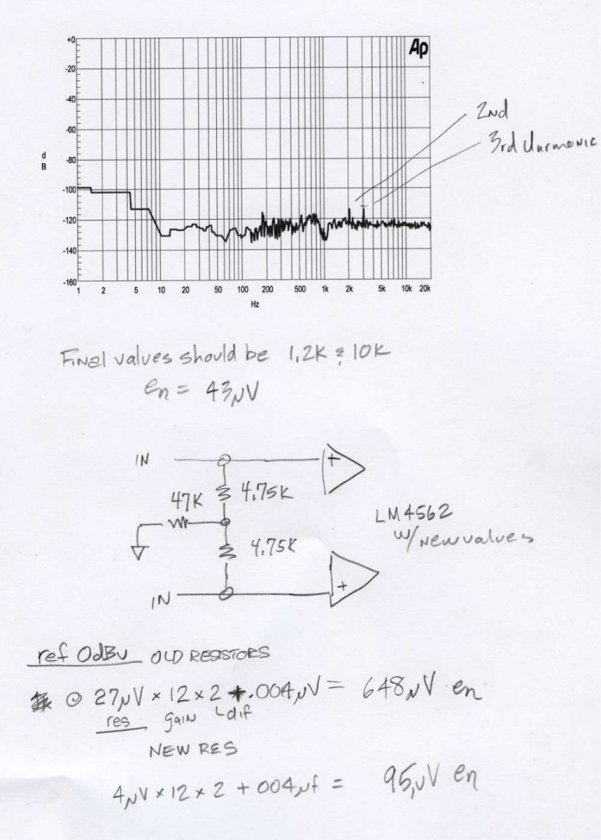 Ap
+0
-20
-40
-60
-80
-100
-120
-140
-160
d
B
1 2 5 10 20 50 100 200 500 1k 2k 5k 10k 20k
Hz
2nd
3rd Harmonic
Final values should be 1.2K & 10K
en = 43µV
IN
47K 4.75K
4.75K
LM4562
w/ new values
IN
ref 0dBu OLD RESISTORS
@ 27µV × 12 × 2 + .004µV = 648µV en
res gain dif
NEW RES
4µV × 12 × 2 + 004µf = 95µV en